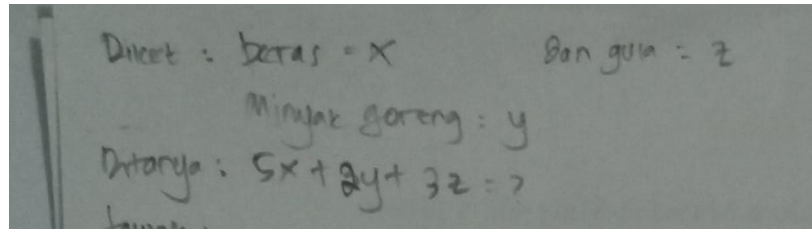 Diket : beras = x Dan gula = z
Minyak goreng : y
Ditanya : 5x + 2y + 3z = ?